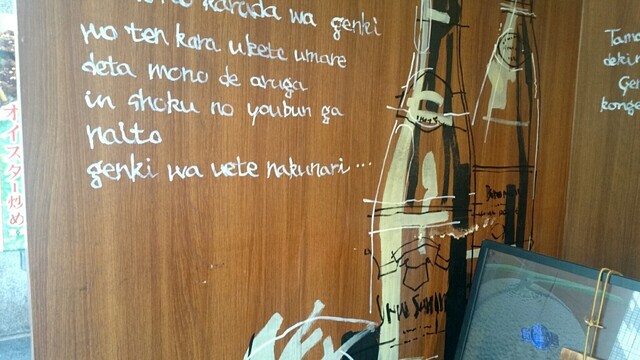 karada wa genki
wo ten kara ukete umare
deta mono de aruga
in shoku no youbun ga
naito
genki wa uete nakunari...
Tama
dekin
Gen
konge
オイスター炒め